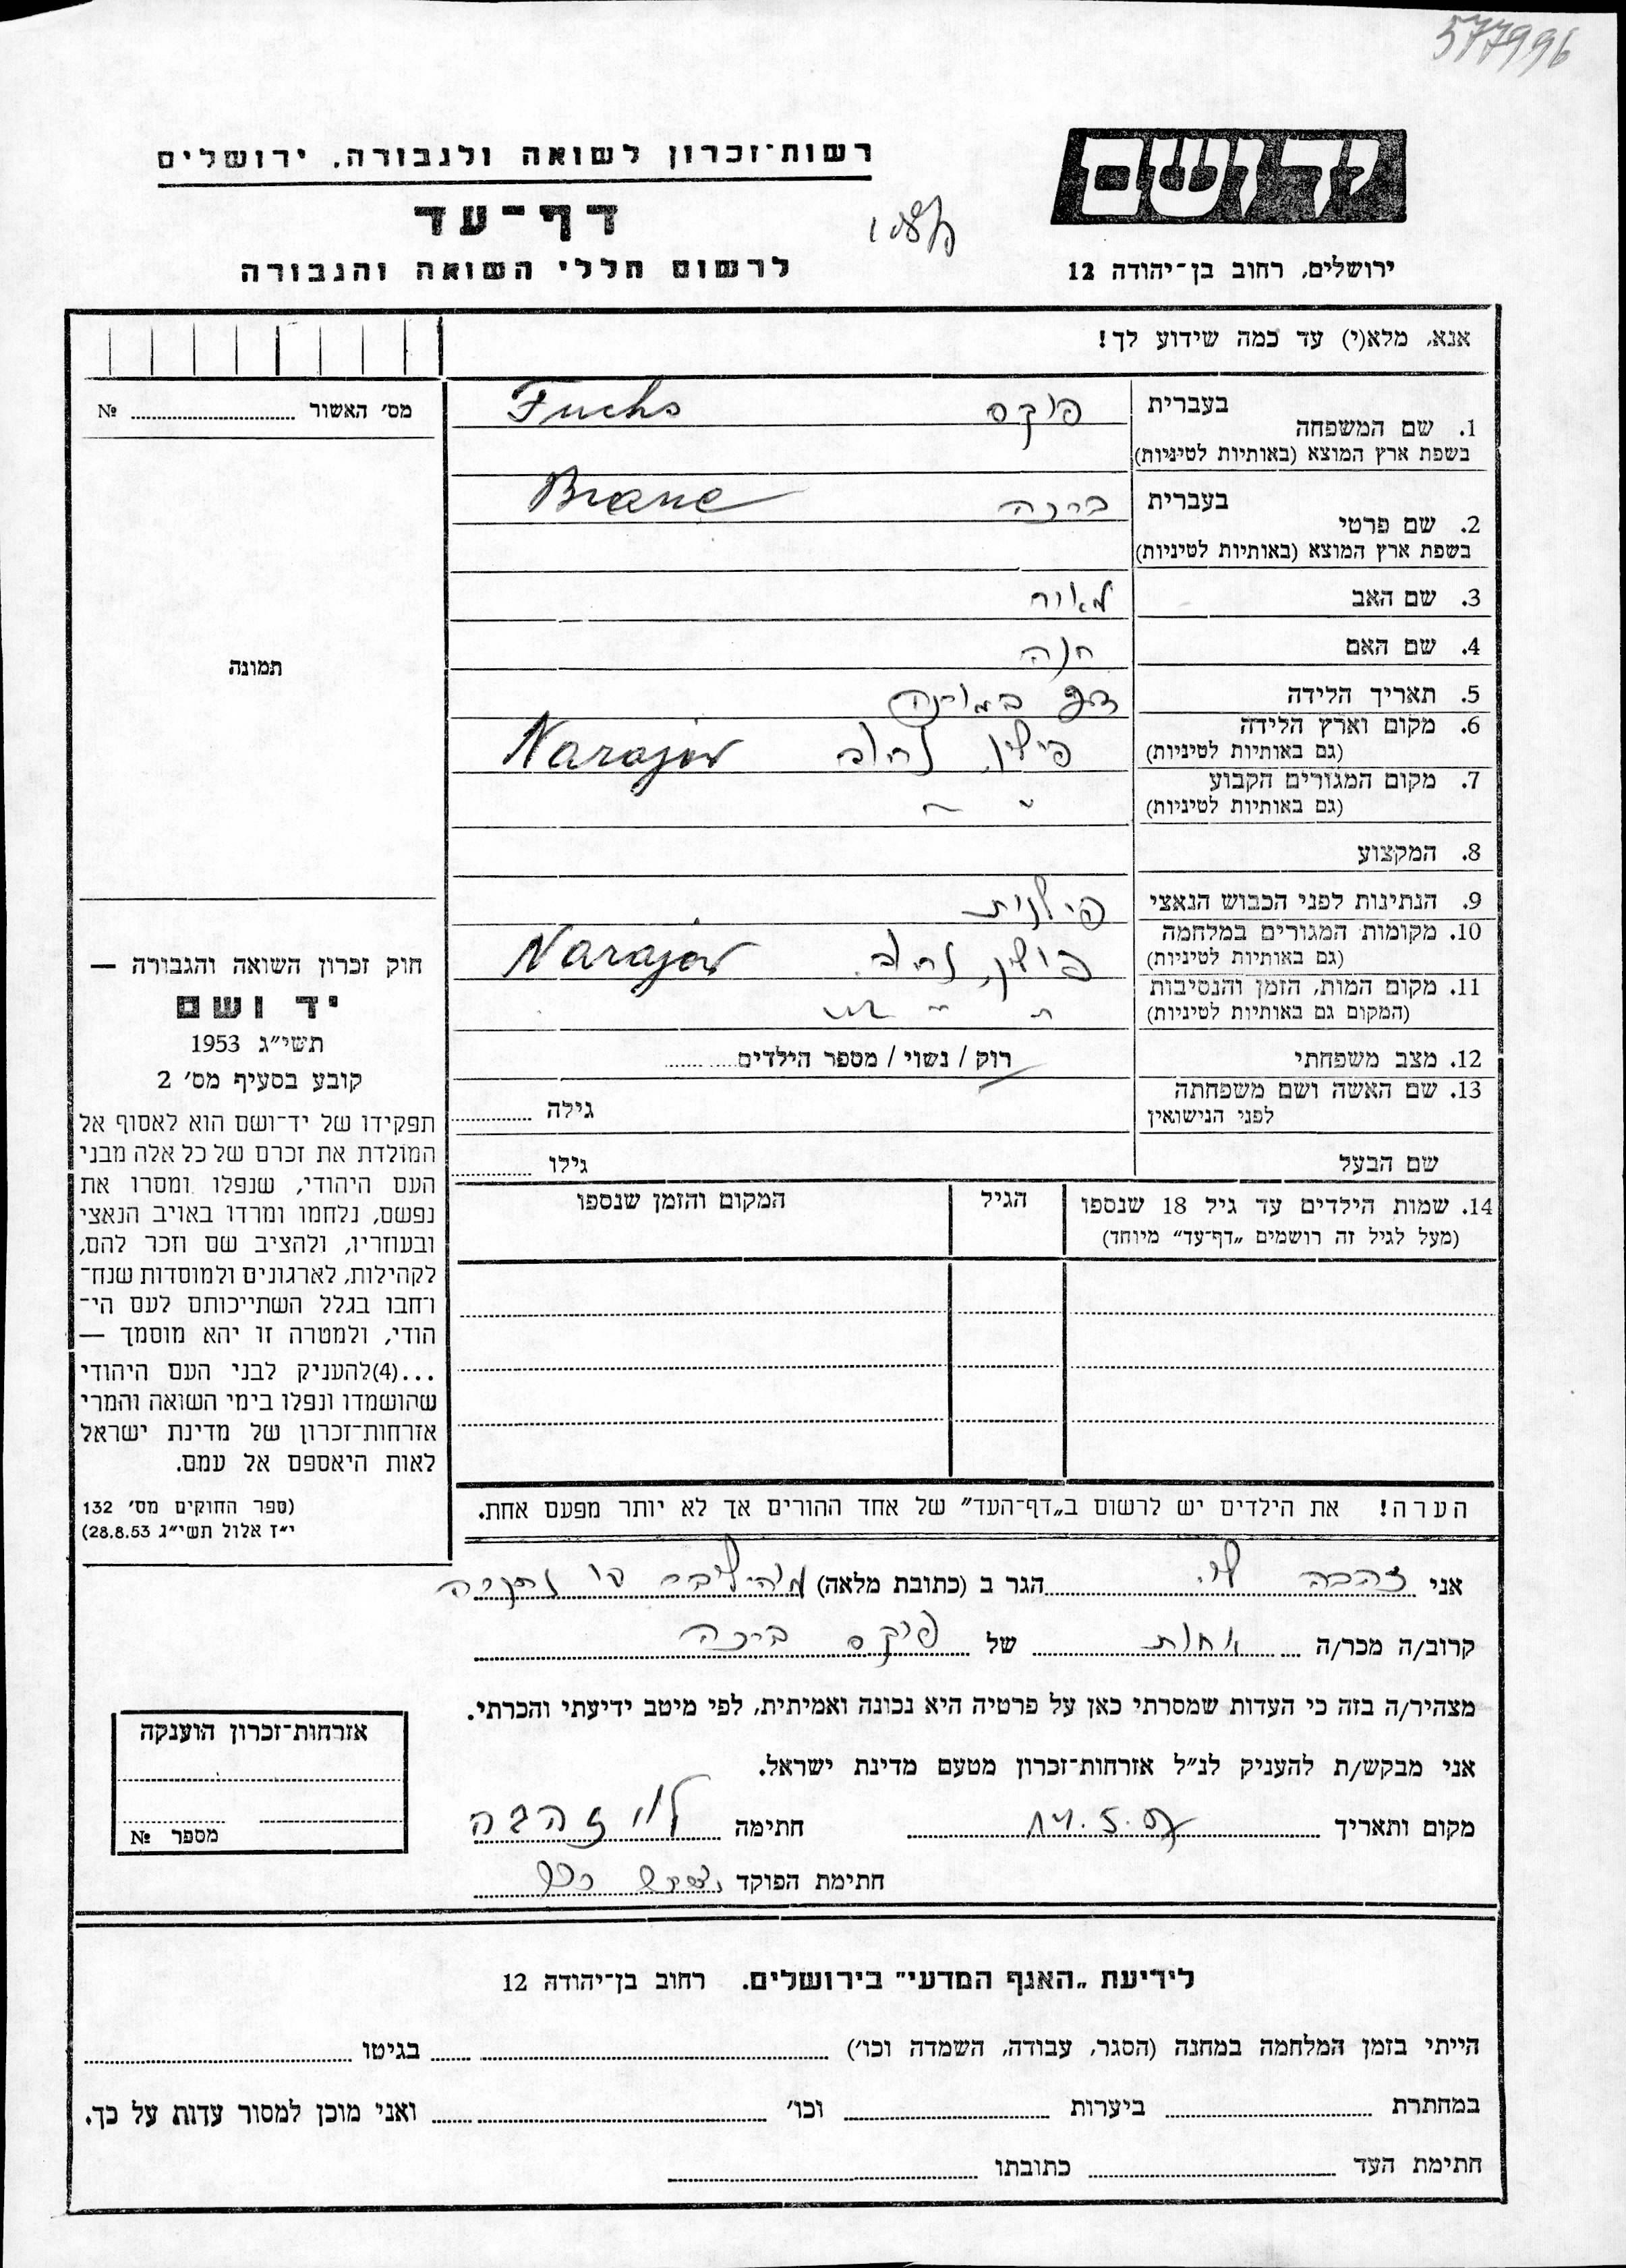 577996
יד ושם
ירושלים, רחוב בן־יהודה 12
רשות־זכרון לשואה ולגבורה, ירושלים
דף־עד
לרשום חללי השואה והגבורה
אנא, מלא(י) עד כמה שידוע לך!
1. שם המשפחה בעברית פוקס Fuchs
בשפת ארץ המוצא (באותיות לטיניות)
2. שם פרטי בעברית ברכה
בשפת ארץ המוצא (באותיות לטיניות)
3. שם האב
4. שם האם חנה
5. תאריך הלידה
6. מקום וארץ הלידה פולין, Narajow
(גם באותיות לטיניות)
7. מקום המגורים הקבוע
(גם באותיות לטיניות) " "
8. המקצוע
9. הנתינות לפני הכבוש הנאצי פולנית
10. מקומות המגורים במלחמה פולין, Narajow
(גם באותיות לטיניות)
11. מקום המות, הזמן והנסיבות
(המקום גם באותיות לטיניות)
12. מצב משפחתי רוק / נשוי / מספר הילדים
13. שם האשה ושם משפחתה
לפני הנישואין גילה
שם הבעל גילו
14. שמות הילדים עד גיל 18 שנספו הגיל המקום והזמן שנספו
(מעל לגיל זה רושמים „דף־עד” מיוחד)
הערה! את הילדים יש לרשום ב„דף־העד” של אחד ההורים אך לא יותר מפעם אחת.
מס׳ האשור №
תמונה
חוק זכרון השואה והגבורה —
יד ושם
תשי״ג 1953
קובע בסעיף מס׳ 2
תפקידו של יד־ושם הוא לאסוף אל
המולדת את זכרם של כל אלה מבני
העם היהודי, שנפלו ומסרו את
נפשם, נלחמו ומרדו באויב הנאצי
ובעוזריו, ולהציב שם וזכר להם,
לקהילות, לארגונים ולמוסדות שנח־
רחבו בגלל השתייכותם לעם הי־
הודי, ולמטרה זו יהא מוסמך —
...(4)להעניק לבני העם היהודי
שהושמדו ונפלו בימי השואה והמרי
אזרחות־זכרון של מדינת ישראל
לאות היאספם אל עמם.
(ספר החוקים מס׳ 132
י״ז אלול תשי״ג 28.8.53)
אני זהבה לוי הגר ב (כתובת מלאה)
קרוב/ה מכר/ה אחות של פוקס ברכה
מצהיר/ה בזה כי העדות שמסרתי כאן על פרטיה היא נכונה ואמיתית, לפי מיטב ידיעתי והכרתי.
אני מבקש/ת להעניק לנ״ל אזרחות־זכרון מטעם מדינת ישראל.
מקום ותאריך חתימה לוי זהבה
חתימת הפוקד
אזרחות־זכרון הוענקה
מספר №
לידיעת „האגף המדעי” בירושלים. רחוב בן־יהודה 12
הייתי בזמן המלחמה במחנה (הסגר, עבודה, השמדה וכו׳) בגיטו
במחתרת ביערות וכו׳ ואני מוכן למסור עדות על כך.
חתימת העד כתובתו